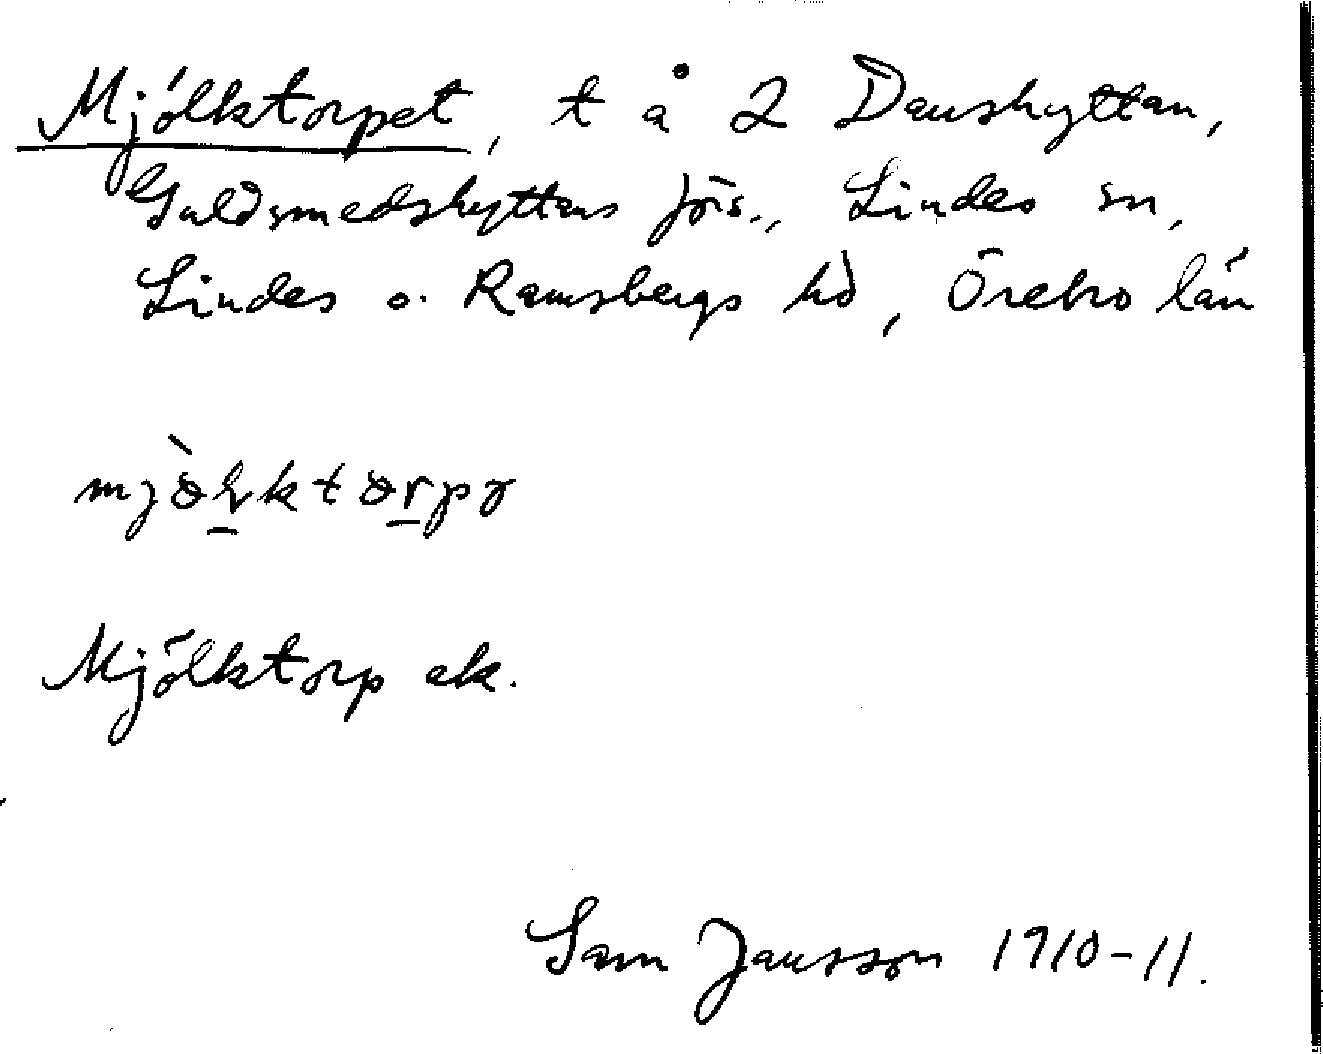 Mjölktorpet, t å 2 Danshyttan,
Guldsmedshyttans förs., Lindes sn,
Lindes o. Ramsbergs hd, Örebro län
Mjölktorp ek.
Sam Jansson 1910-11.